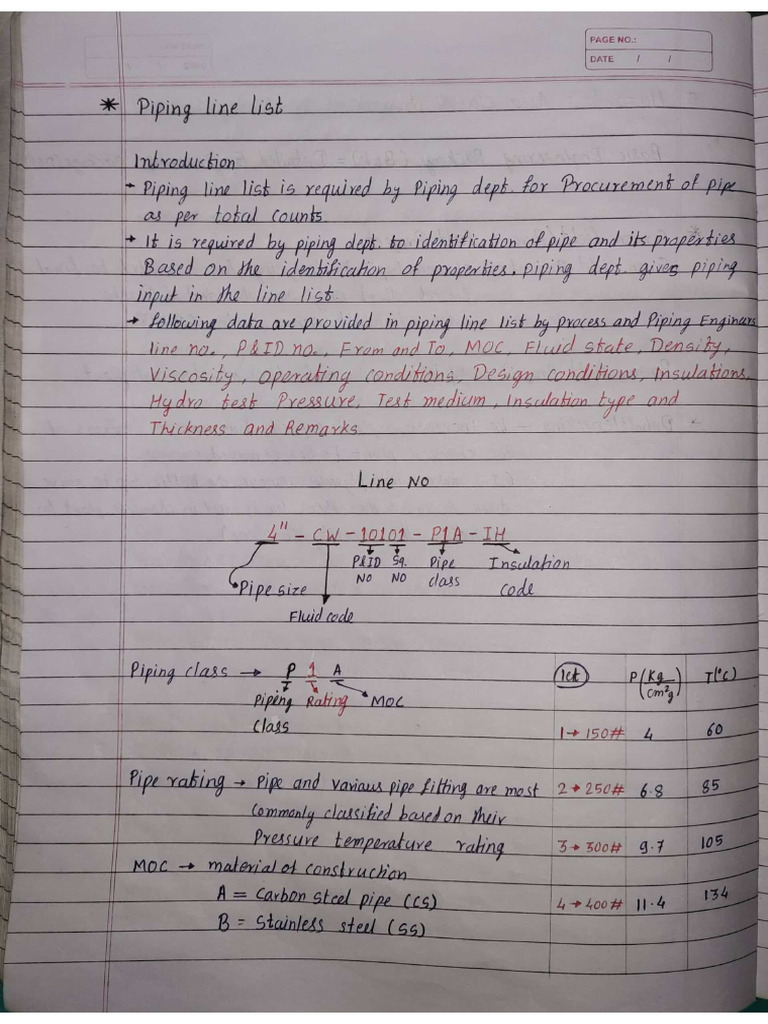 PAGE NO.:
DATE / /
* Piping line list
Introduction
→ Piping line list is required by Piping dept. for Procurement of pipe
as per total counts.
→ It is required by piping dept. to identification of pipe and its properties
Based on the identification of properties. piping dept. gives piping
input in the line list
→ following data are provided in piping line list by process and Piping Engineers
line no., P&ID no., From and To, MOC, Fluid state, Density,
Viscosity, operating conditions, Design conditions, Insulations,
Hydro test Pressure, Test medium, Insulation type and
Thickness and Remarks.
Line NO
4" - CW - 10101 - P1A - IH
P&ID Sq. Pipe Insulation
NO NO class code
Pipe size
Fluid code
Piping class → P 1 A
Piping Rating MOC
class
Pipe rating → Pipe and various pipe fitting are most
commonly classified based on their
Pressure temperature rating
MOC → material of construction
A = Carbon steel pipe (CS)
B = Stainless steel (SS)
P (Kg/cm²g) T(°C)
1 → 150# 4 60
2 → 250# 6.8 85
3 → 300# 9.7 105
4 → 400# 11.4 134